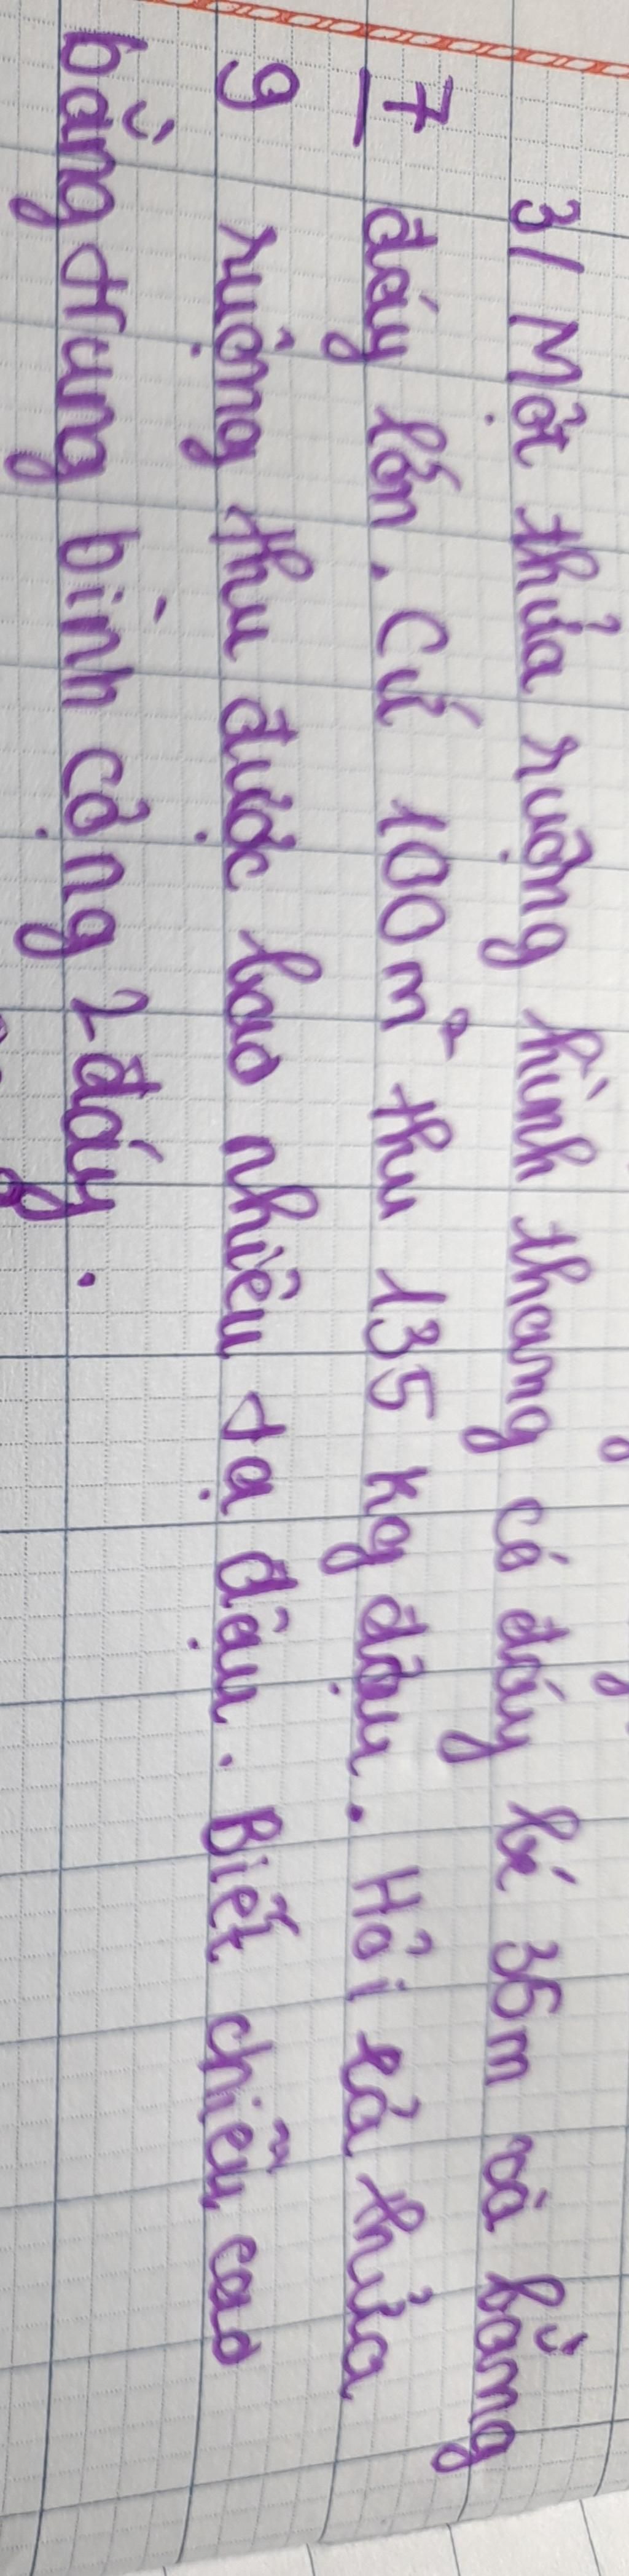 3/ Một thửa ruộng hình thang có đáy bé 36m và bằng
7/9 đáy lớn. Cứ 100m² thu 135 kg đậu. Hỏi cả thửa
ruộng thu được bao nhiêu tạ đậu. Biết chiều cao
bằng trung bình cộng 2 đáy.